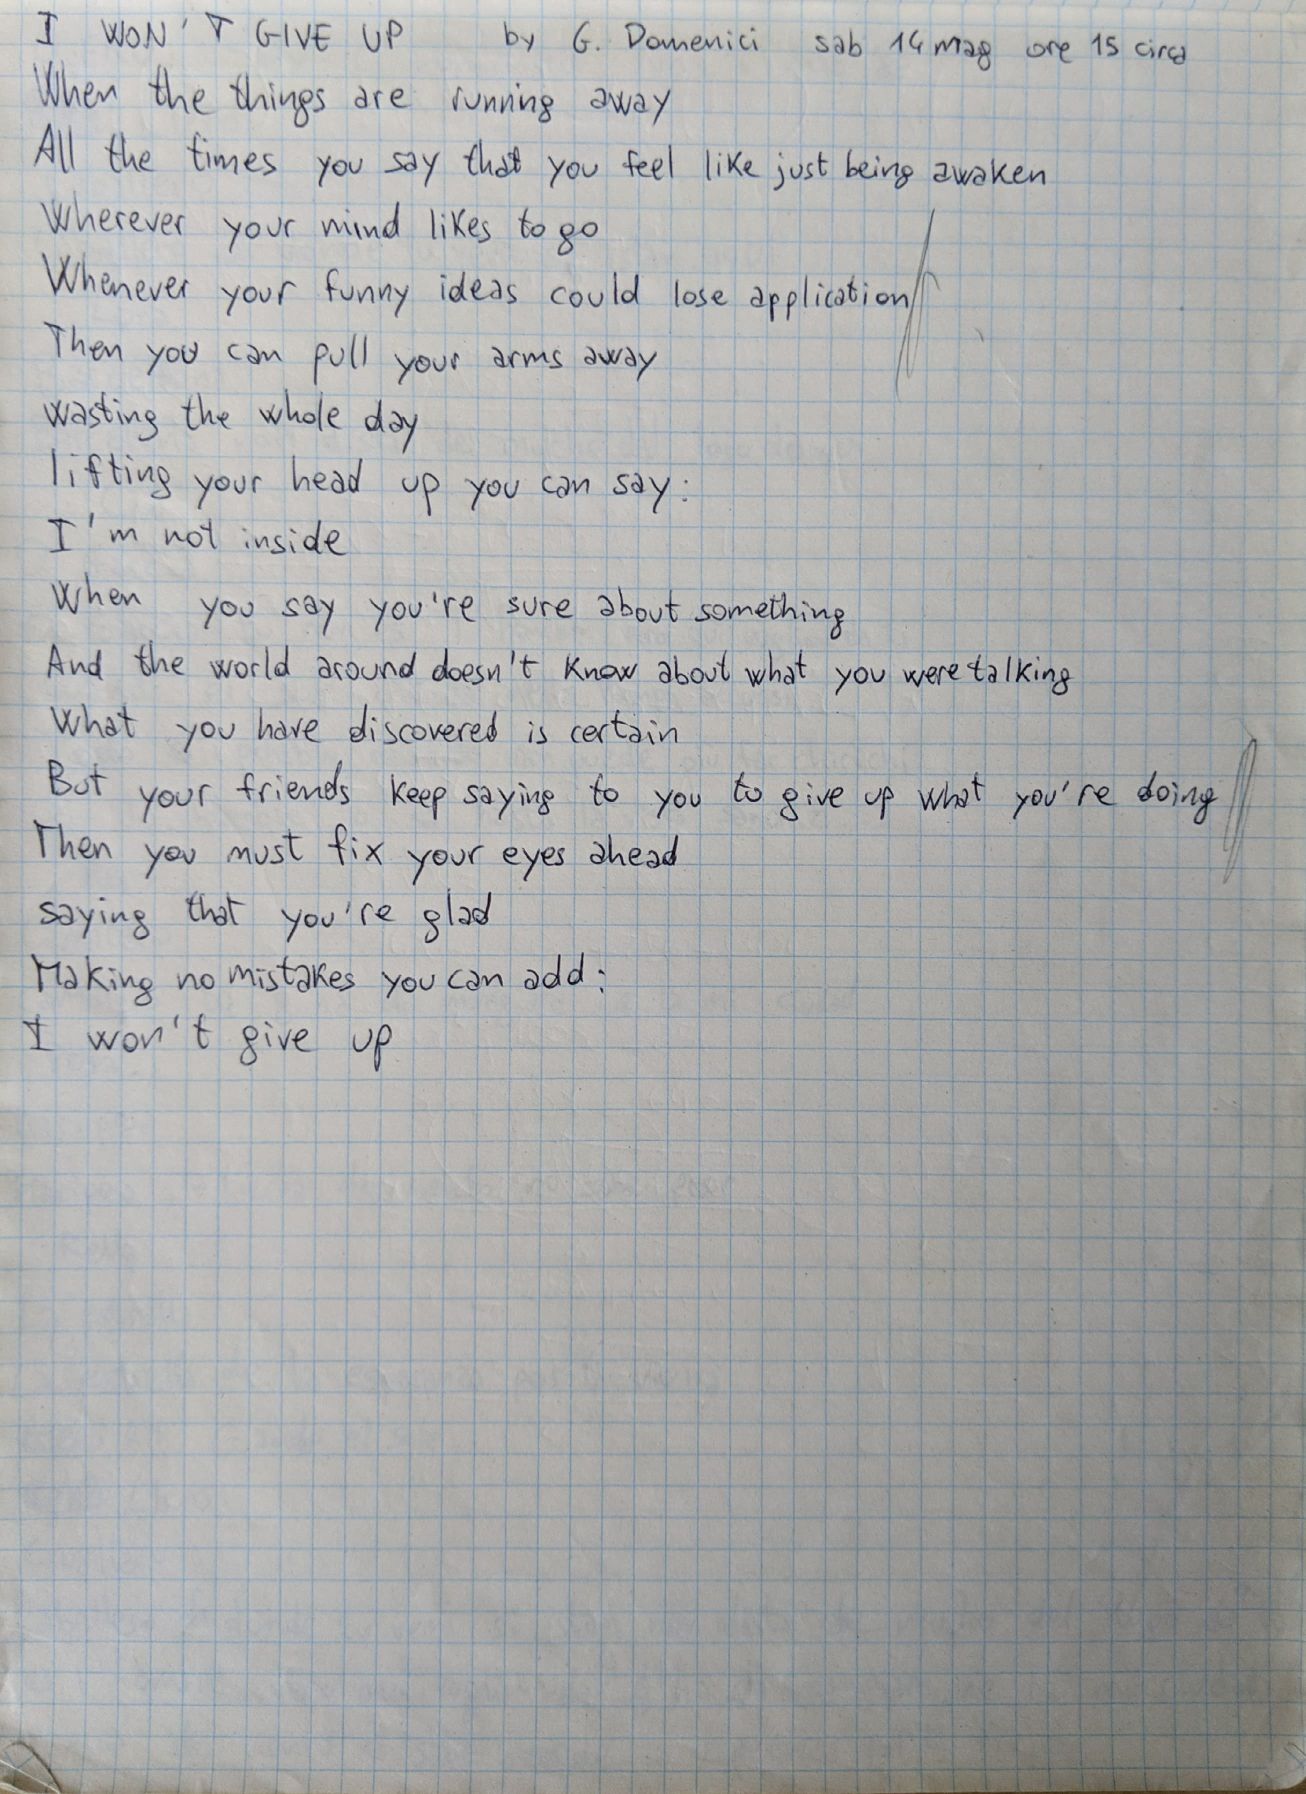 I WON'T GIVE UP by G. Domenici sab 14 mag ore 15 circa
When the things are running away
All the times you say that you feel like just being awaken
Wherever your mind likes to go
Whenever your funny ideas could lose application
Then you can pull your arms away
wasting the whole day
lifting your head up you can say:
I'm not inside
When you say you're sure about something
And the world around doesn't know about what you were talking
What you have discovered is certain
But your friends keep saying to you to give up what you're doing
Then you must fix your eyes ahead
saying that you're glad
Making no mistakes you can add:
I won't give up